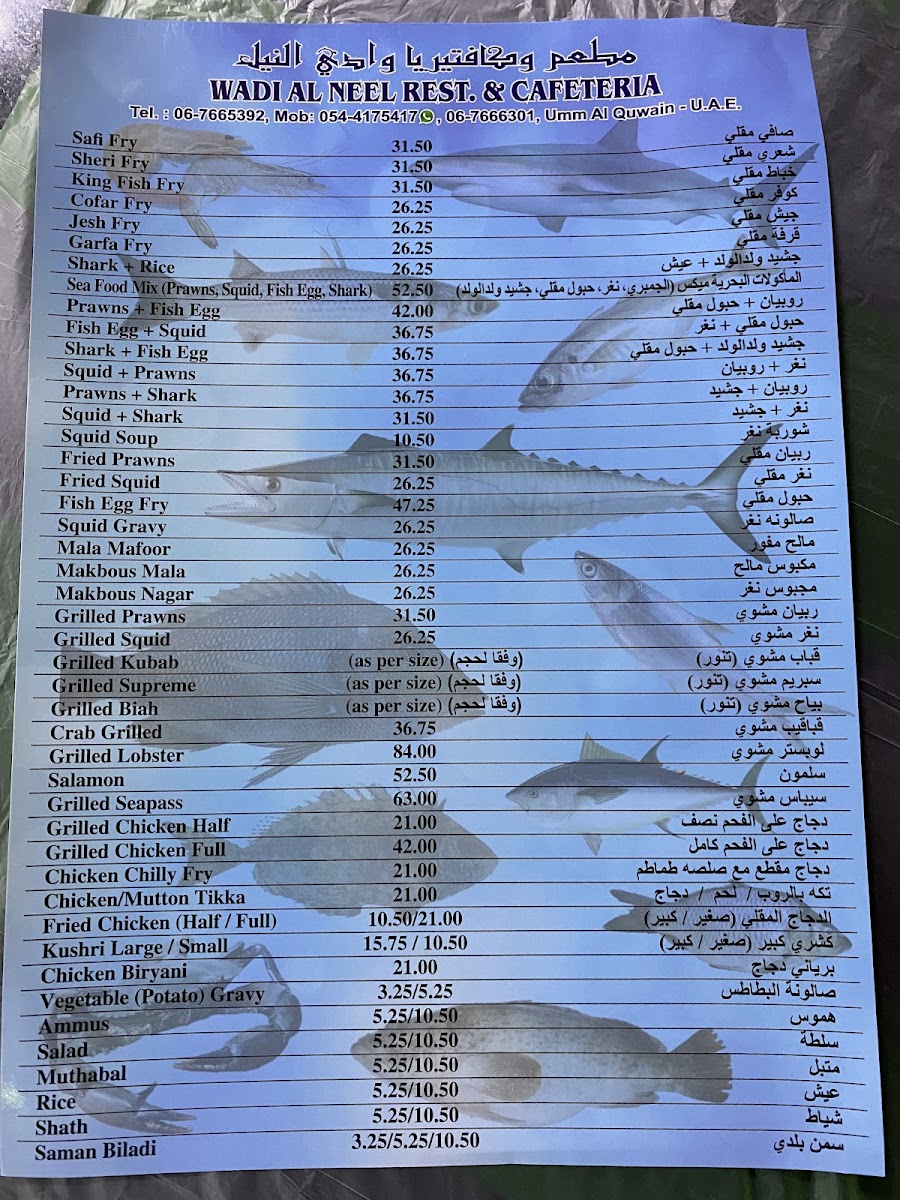 مطعم وكافتيريا وادي النيل
WADI AL NEEL REST. & CAFETERIA
Tel. : 06-7665392, Mob: 054-4175417, 06-7666301, Umm Al Quwain - U.A.E.
Safi Fry 31.50 صافي مقلي
Sheri Fry 31.50 شعري مقلي
King Fish Fry 31.50 خباط مقلي
Cofar Fry 26.25 كوفر مقلي
Jesh Fry 26.25 جيش مقلي
Garfa Fry 26.25 قرفة مقلي
Shark + Rice 26.25 جشيد ولدالولد + عيش
Sea Food Mix (Prawns, Squid, Fish Egg, Shark) 52.50 الماكولات البحرية ميكس (الجمبري، نغر، حبول مقلي، جشيد ولدالولد)
Prawns + Fish Egg 42.00 روبيان + حبول مقلي
Fish Egg + Squid 36.75 حبول مقلي + نغر
Shark + Fish Egg 36.75 جشيد ولدالولد + حبول مقلي
Squid + Prawns 36.75 نغر + روبيان
Prawns + Shark 36.75 روبيان + جشيد
Squid + Shark 31.50 نغر + جشيد
Squid Soup 10.50 شوربة نغر
Fried Prawns 31.50 ربيان مقلي
Fried Squid 26.25 نغر مقلي
Fish Egg Fry 47.25 حبول مقلي
Squid Gravy 26.25 صالونه نغر
Mala Mafoor 26.25 مالح مفور
Makbous Mala 26.25 مكبوس مالح
Makbous Nagar 26.25 مجبوس نغر
Grilled Prawns 31.50 ربيان مشوي
Grilled Squid 26.25 نغر مشوي
Grilled Kubab (as per size) (وفقا لحجم) قباب مشوي (تنور)
Grilled Supreme (as per size) (وفقا لحجم) سبريم مشوي (تنور)
Grilled Biah (as per size) (وفقا لحجم) بياح مشوي (تنور)
Crab Grilled 36.75 قباقيب مشوي
Grilled Lobster 84.00 لوبستر مشوي
Salamon 52.50 سلمون
Grilled Seapass 63.00 سيباس مشوي
Grilled Chicken Half 21.00 دجاج على الفحم نصف
Grilled Chicken Full 42.00 دجاج على الفحم كامل
Chicken Chilly Fry 21.00 دجاج مقطع مع صلصه طماطم
Chicken/Mutton Tikka 21.00 تكه بالروب / لحم / دجاج
Fried Chicken (Half / Full) 10.50/21.00 الدجاج المقلي (صغير / كبير)
Kushri Large / Small 15.75 / 10.50 كشري كبير (صغير / كبير)
Chicken Biryani 21.00 برياني دجاج
Vegetable (Potato) Gravy 3.25/5.25 صالونة البطاطس
Ammus 5.25/10.50 هموس
Salad 5.25/10.50 سلطة
Muthabal 5.25/10.50 متبل
Rice 5.25/10.50 عيش
Shath 5.25/10.50 شياط
Saman Biladi 3.25/5.25/10.50 سمن بلدي